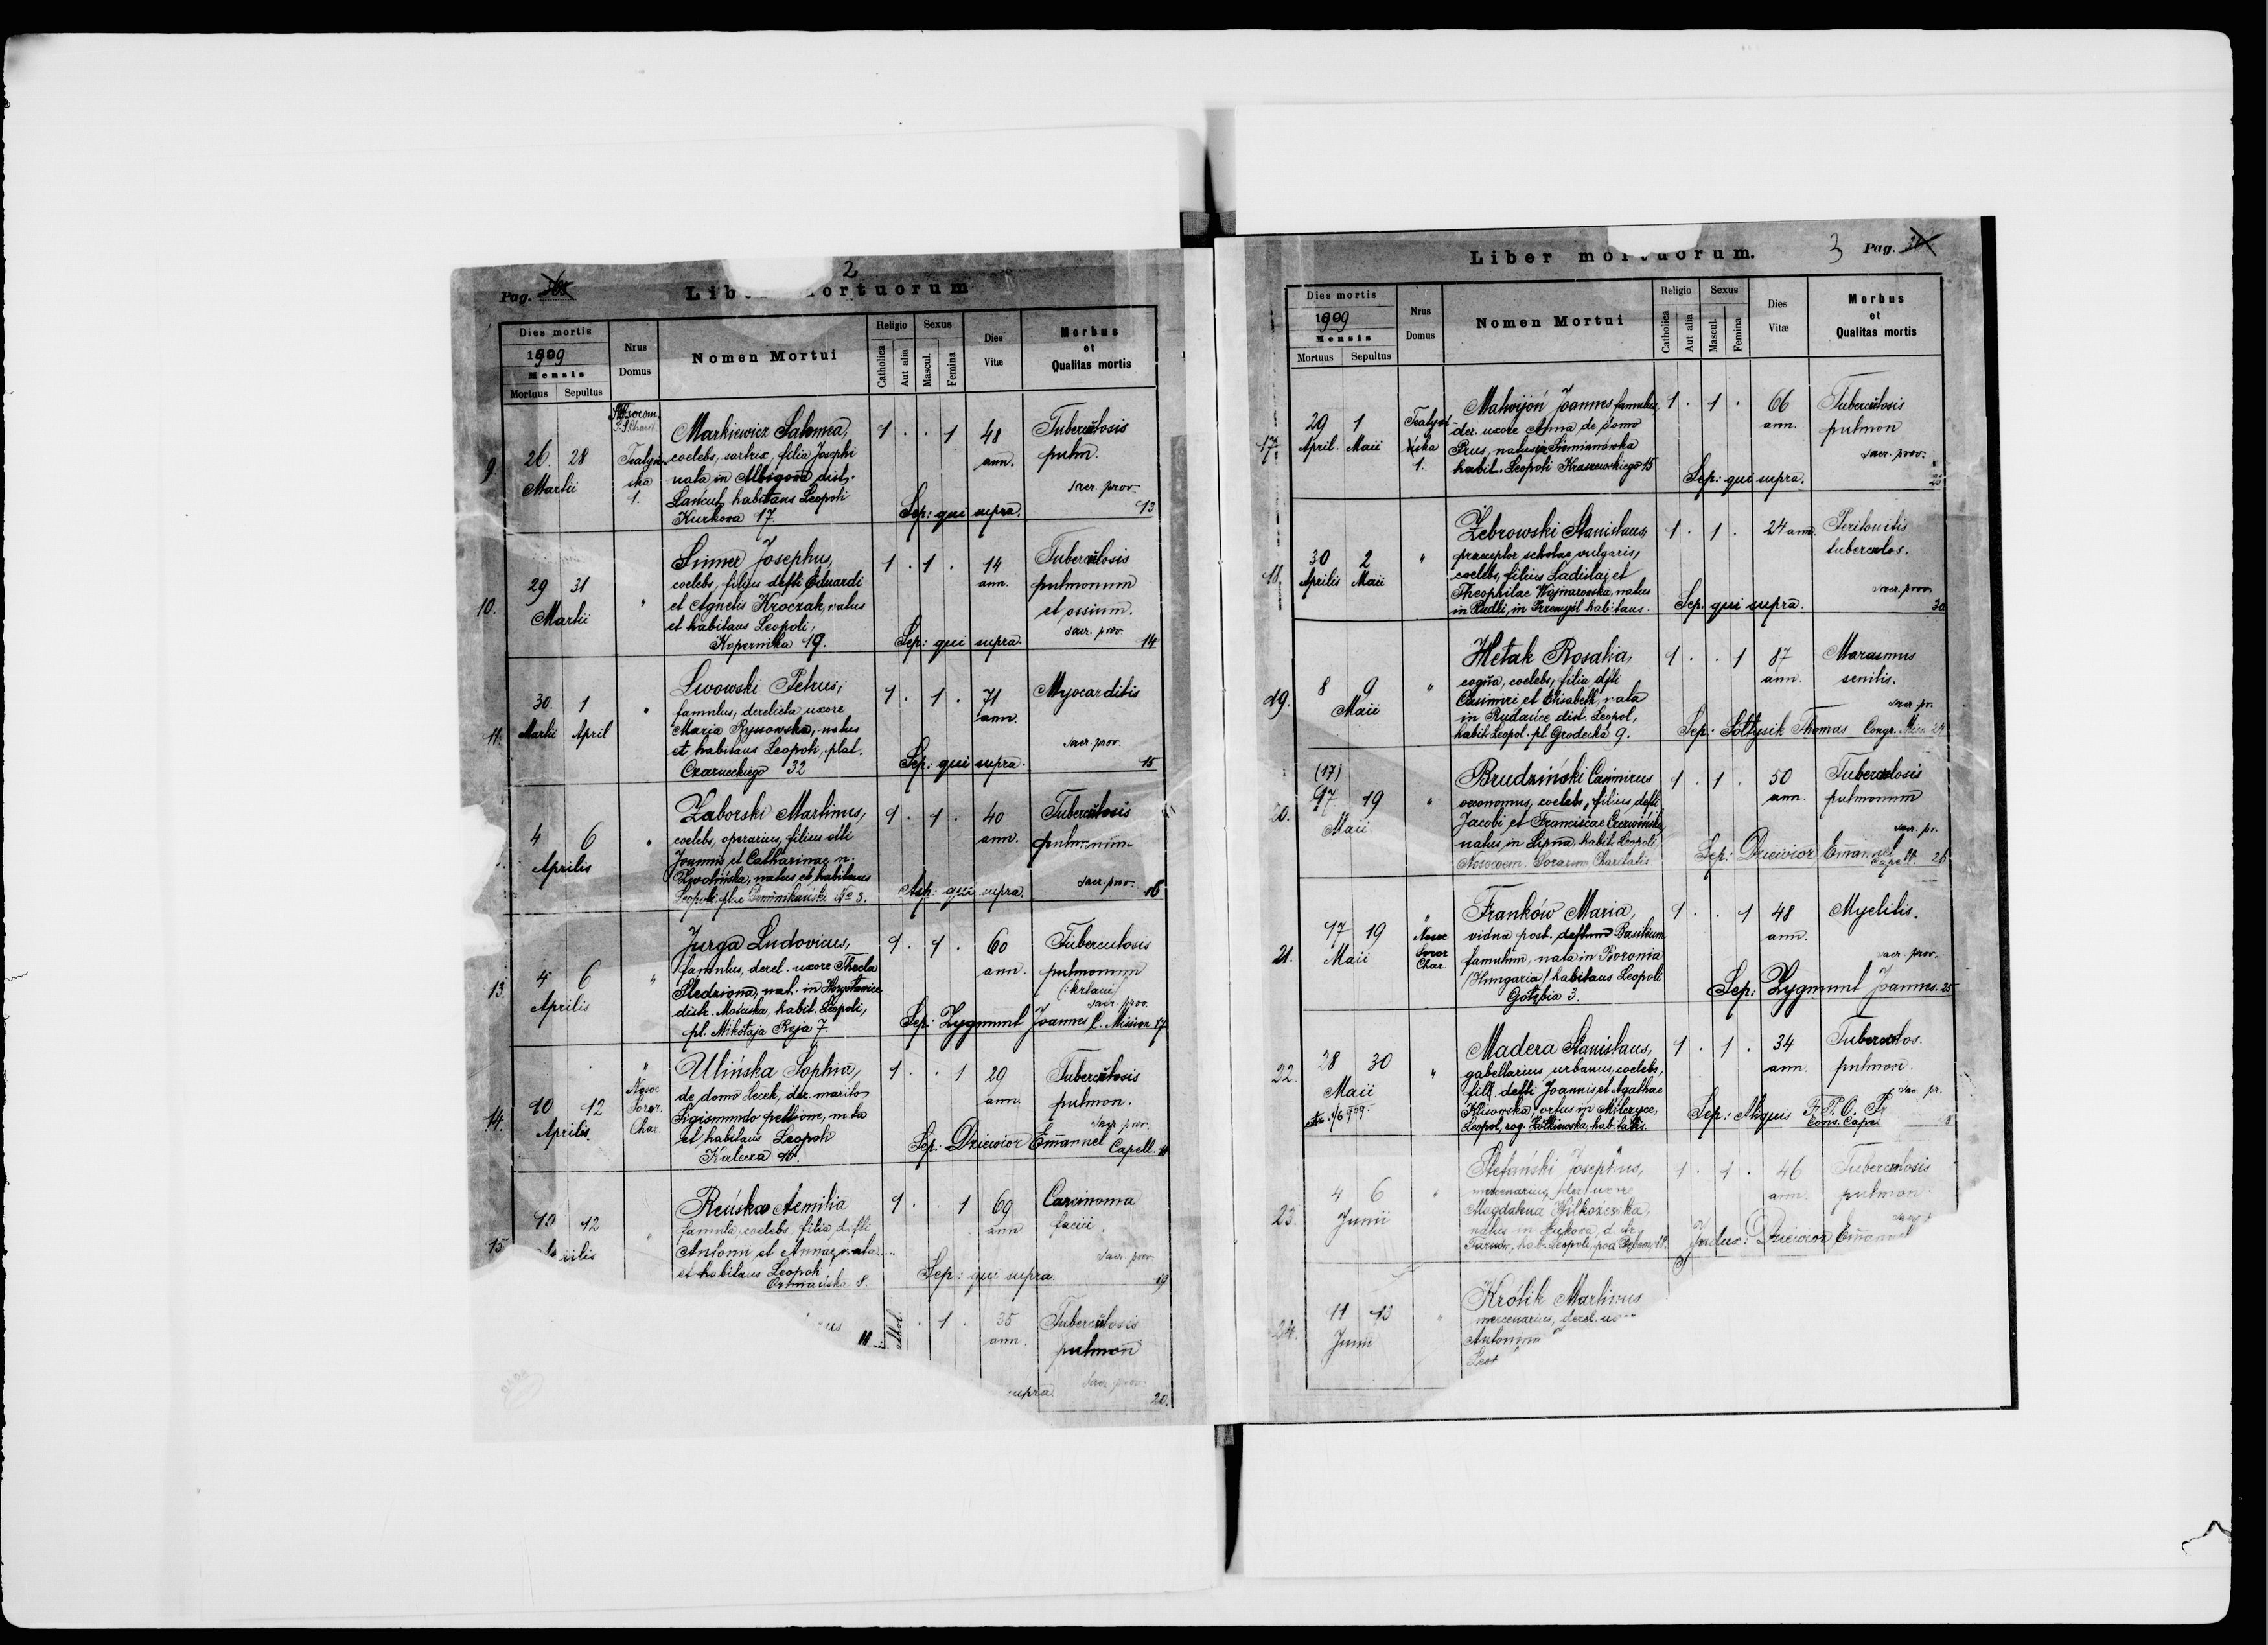 2
Pag.
Liber mortuorum
Dies mortis
1909
Mensis
Mortuus Sepultus
Nrus
Domus
Nomen Mortui
Religio
Catholica
Aut alia
Sexus
Mascul.
Femina
Dies
Vitæ
Morbus
et
Qualitas mortis
9.
26. 28
Martii
1.
Markiewicz Salomea,
coelebs, sartrix, filia Josephi
nata in Albigowa distr.
Łańcut, habitans Leopoli
Kurkowa 17.
1 . . 1
48
ann.
Tuberculosis
pulm.
sacr. prov.
Sep: qui supra.
13
10.
29 31
Martii
"
Josephus,
coelebs, filius defti Eduardi
et Agnetis Kroczak, natus
et habitans Leopoli,
Kopernika 19.
1 . 1 .
14
ann.
Tuberculosis
pulmonum
et ossium.
sacr. prov.
Sep: qui supra.
14
11.
30. 1
Martii April
"
Lwowski Petrus,
famulus, derelicta uxore
Maria Ryssowska, natus
et habitans Leopoli, plat.
Czarneckiego 32
1 . 1 .
71
ann.
Myocarditis
sacr. prov.
Sep: qui supra.
15
4 6
Aprilis
"
Zaborski Martinus,
coelebs, operarius, filius dfti
Joannis et Catharinae n.
natus et habitans
Leopoli plac Dominikański No 3.
1 . 1 .
40
ann.
Tuberculosis
pulmonum
sacr. prov.
Sep: qui supra.
16
13.
4 6
Aprilis
"
Jurga Ludovicus,
famulus, derel. uxore Thecla
Śledziona, nat. in
distr. Mościska, habit. Leopoli,
pl. Mikołaja Reja 7.
1 . 1 .
60
ann.
Tuberculosis
pulmonum
(:krtani)
sacr. prov.
Sep: Zygmunt Joannes C. Mission 17
14.
10 12
Aprilis
"
Nosoc
Soror.
Char.
Ulińska Sophia,
de domo Lecek, der. marito
Sigismundo pellione, nata
et habitans Leopoli
Kalecza 10.
1 . . 1
29
ann.
Tuberculosis
pulmon.
sacr. prov.
Sep: Dziewior Emanuel Capell.
15
10 12
Aprilis
"
Reńska Aemilia
famula, coelebs filia defti
Antonii et Annae, nata
et habitans Leopoli
Ormiańska 8.
1 . 1
69
ann
Carcinoma
faciei.
sacr. prov.
Sep: qui supra.
19
. 1 .
35
ann.
Tuberculosis
pulmon
sacr. prov.
supra
20.
Liber mortuorum.
3
Pag.
Dies mortis
1909
Mensis
Mortuus Sepultus
Nrus
Domus
Nomen Mortui
Religio
Catholica
Aut alia
Sexus
Mascul.
Femina
Dies
Vitæ
Morbus
et
Qualitas mortis
17.
29 1
April. Maii
1.
Joannes famulus,
der. uxore Anna de domo
Prus, natus in Siemianówka
habit. Leopoli Kraszewskiego 15
1 . 1 .
66
ann.
Tuberculosis
pulmon
sacr. prov.
Sep: qui supra.
18.
30 2
Aprilis Maii
"
Żebrowski Stanislaus,
praeceptor scholae vulgaris,
coelebs, filius Ladislai et
Theophilae Wojnarowska, natus
in Rudki, in Przemyśl habitans.
1 . 1 .
24 ann.
Peritonitis
tuberculos.
sacr. prov.
Sep. qui supra.
19.
8 9
Maii
"
Hetak Rosalia,
coelebs, filia dfti
Casimiri et Elisabeth, nata
in Rudańce dist. Leopol,
habit Leopol. pl. Grodecka 9.
1 . . 1
87
ann.
Marasmus
senilis.
sacr. pr.
Sep: Sołtysik Thomas Congr. Miss
20.
(17)
17 19
Maii
"
Brudziński Casimirus
oeconomus, coelebs, filius defti
Jacobi et Franciscae Czerwińska,
natus in Lipna, habit. Leopoli
Nosocom. Sororum Charitatis
1 . 1 .
50
ann.
Tuberculosis
pulmonum
sacr. pr.
Sep: Dziewior Emanuel
Capell. 26
21.
17 19
Maii
"
Nosoc
Soror
Char.
Franków Maria,
vidua post. deftum Basilium
famulum, nata in Boronia
/Hungaria/ habitans Leopoli
Gołębia 3.
1 . . 1
48
ann.
Myelitis.
sacr. prov.
Sep: Zygmunt Joannes. 25
22.
28 30
Maii
"
Madera Stanislaus,
gabellarius urbanus, coelebs,
fil. defti Joannis et Agathae
Klisowska, ortus in Milczyce,
1 . 1 .
34
ann.
Tuberculos.
pulmon.
sac. pr.
Sep:
23.
4 6
Junii
"
Stefański Josephus,
mercenarius, der uxore
Magdalena
natus in Łukowa, distr.
Tarnów, hab. Leopoli, pod Dębem, 18.
1 . 1 .
46
ann.
Tuberculosis
pulmon.
Indux: Dziewior Emanuel
24.
11 13
Junii
"
Krolik Martinus
mercenarius, derel.
Antonina